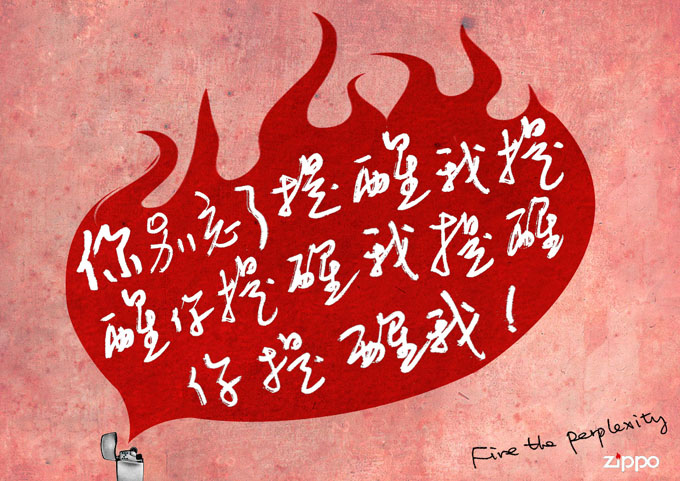 你别忘了提醒我提
醒你提醒我提醒
你提醒我！
Fire the perplexity
zippo